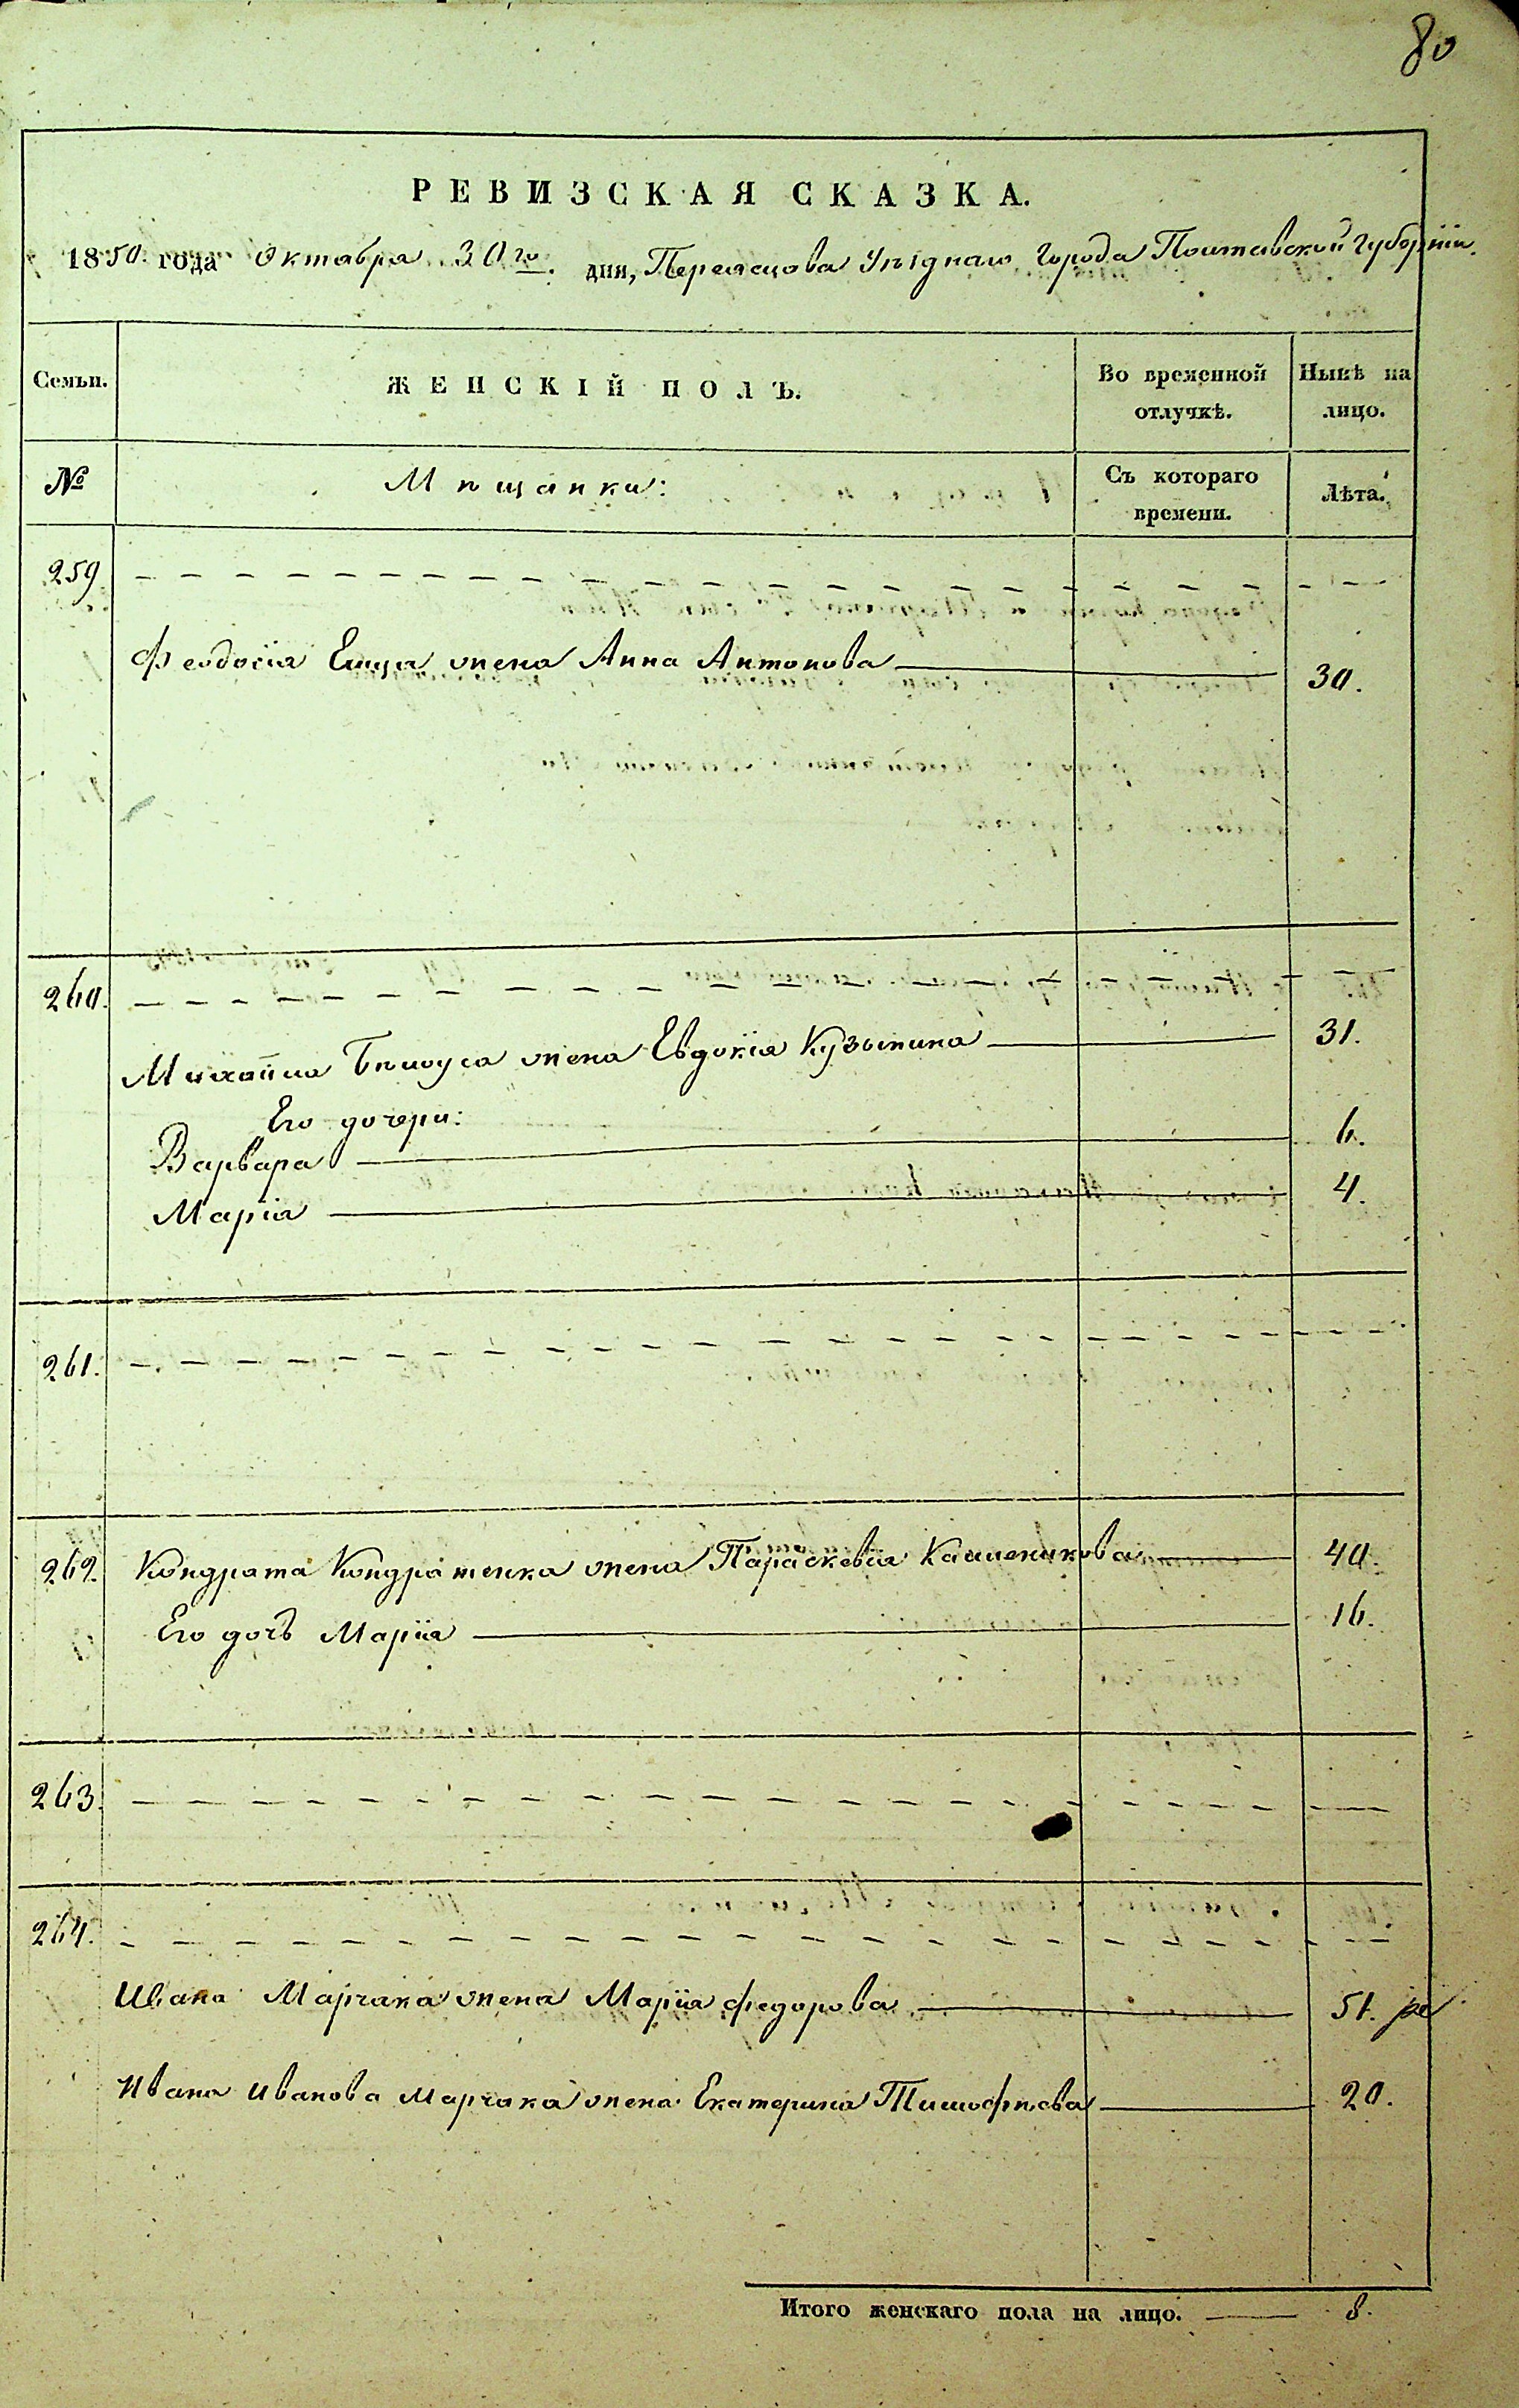 80
РЕВИЗСКАЯ СКАЗКА.
1850. года Октября 30го. дня, Переяслова Уѣзднаго Города Полтавской Губернiи.
Семьи. ЖЕНСКІЙ ПОЛЪ. Во временной отлучкѣ. Нынѣ на лицо.
№ Мѣщанки: Съ котораго времени. Лѣта.
259
Феодосiя жена Анна Антонова 30.
260.
Михайла Бѣлоуса жена Евдокiя Кузьмина 31.
Его дочери:
Варвара 6.
Марiя 4.
261.
262. Кондрата Кондратенка жена Параскевiя 40.
Его дочь Марiя 16.
263.
264.
Ивана Марчака жена Марiя Федорова 51.
Ивана Иванова Марчака жена Екатерина Тимофѣева 20.
Итого женскаго пола на лицо. 8.